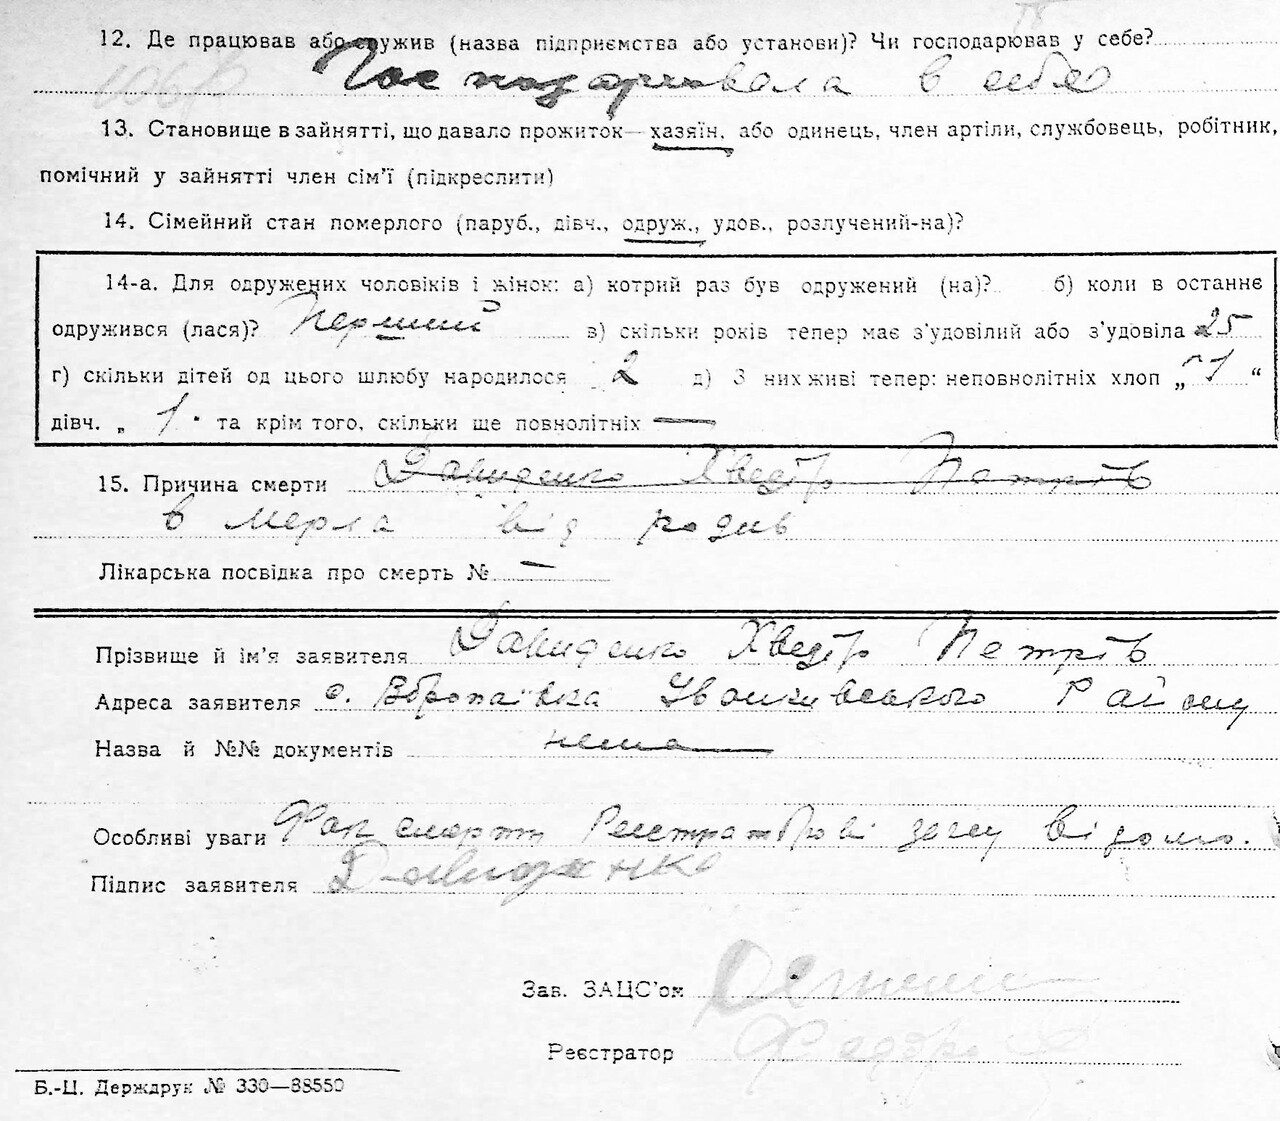 12. Де працював або служив (назва підприємства або установи)? Чи господарював у себе?
Господарювала в себе
13. Становище в зайнятті, що давало прожиток—хазяїн, або одинець, член артіли, службовець, робітник,
помічний у зайнятті член сім'ї (підкреслити)
14. Сімейний стан померлого (паруб., дівч., одруж., удов., розлучений-на)?
14-а. Для одружених чоловіків і жінок: а) котрий раз був одружений (на)? б) коли в останнє
одружився (лася)? Перший в) скільки років тепер має з'удовілий або з'удовіла 25
г) скільки дітей од цього шлюбу народилося 2 д) З них живі тепер: неповнолітніх хлоп „ 1 “
дівч. „ 1 " та крім того, скільки ще повнолітніх —
15. Причина смерти Давиденко Хведір Петрів
в мерла від родив
Лікарська посвідка про смерть № —
Прізвище й ім'я заявителя Давиденко Хведір Петрів
Адреса заявителя с. Району
Назва й №№ документів нема
Особливі уваги Фак смерти Реєстраторові загсу відомо.
Підпис заявителя Давиденко
Зав. ЗАЦС'ом
Реєстратор
Б.-Ц. Держдрук № 330—88550